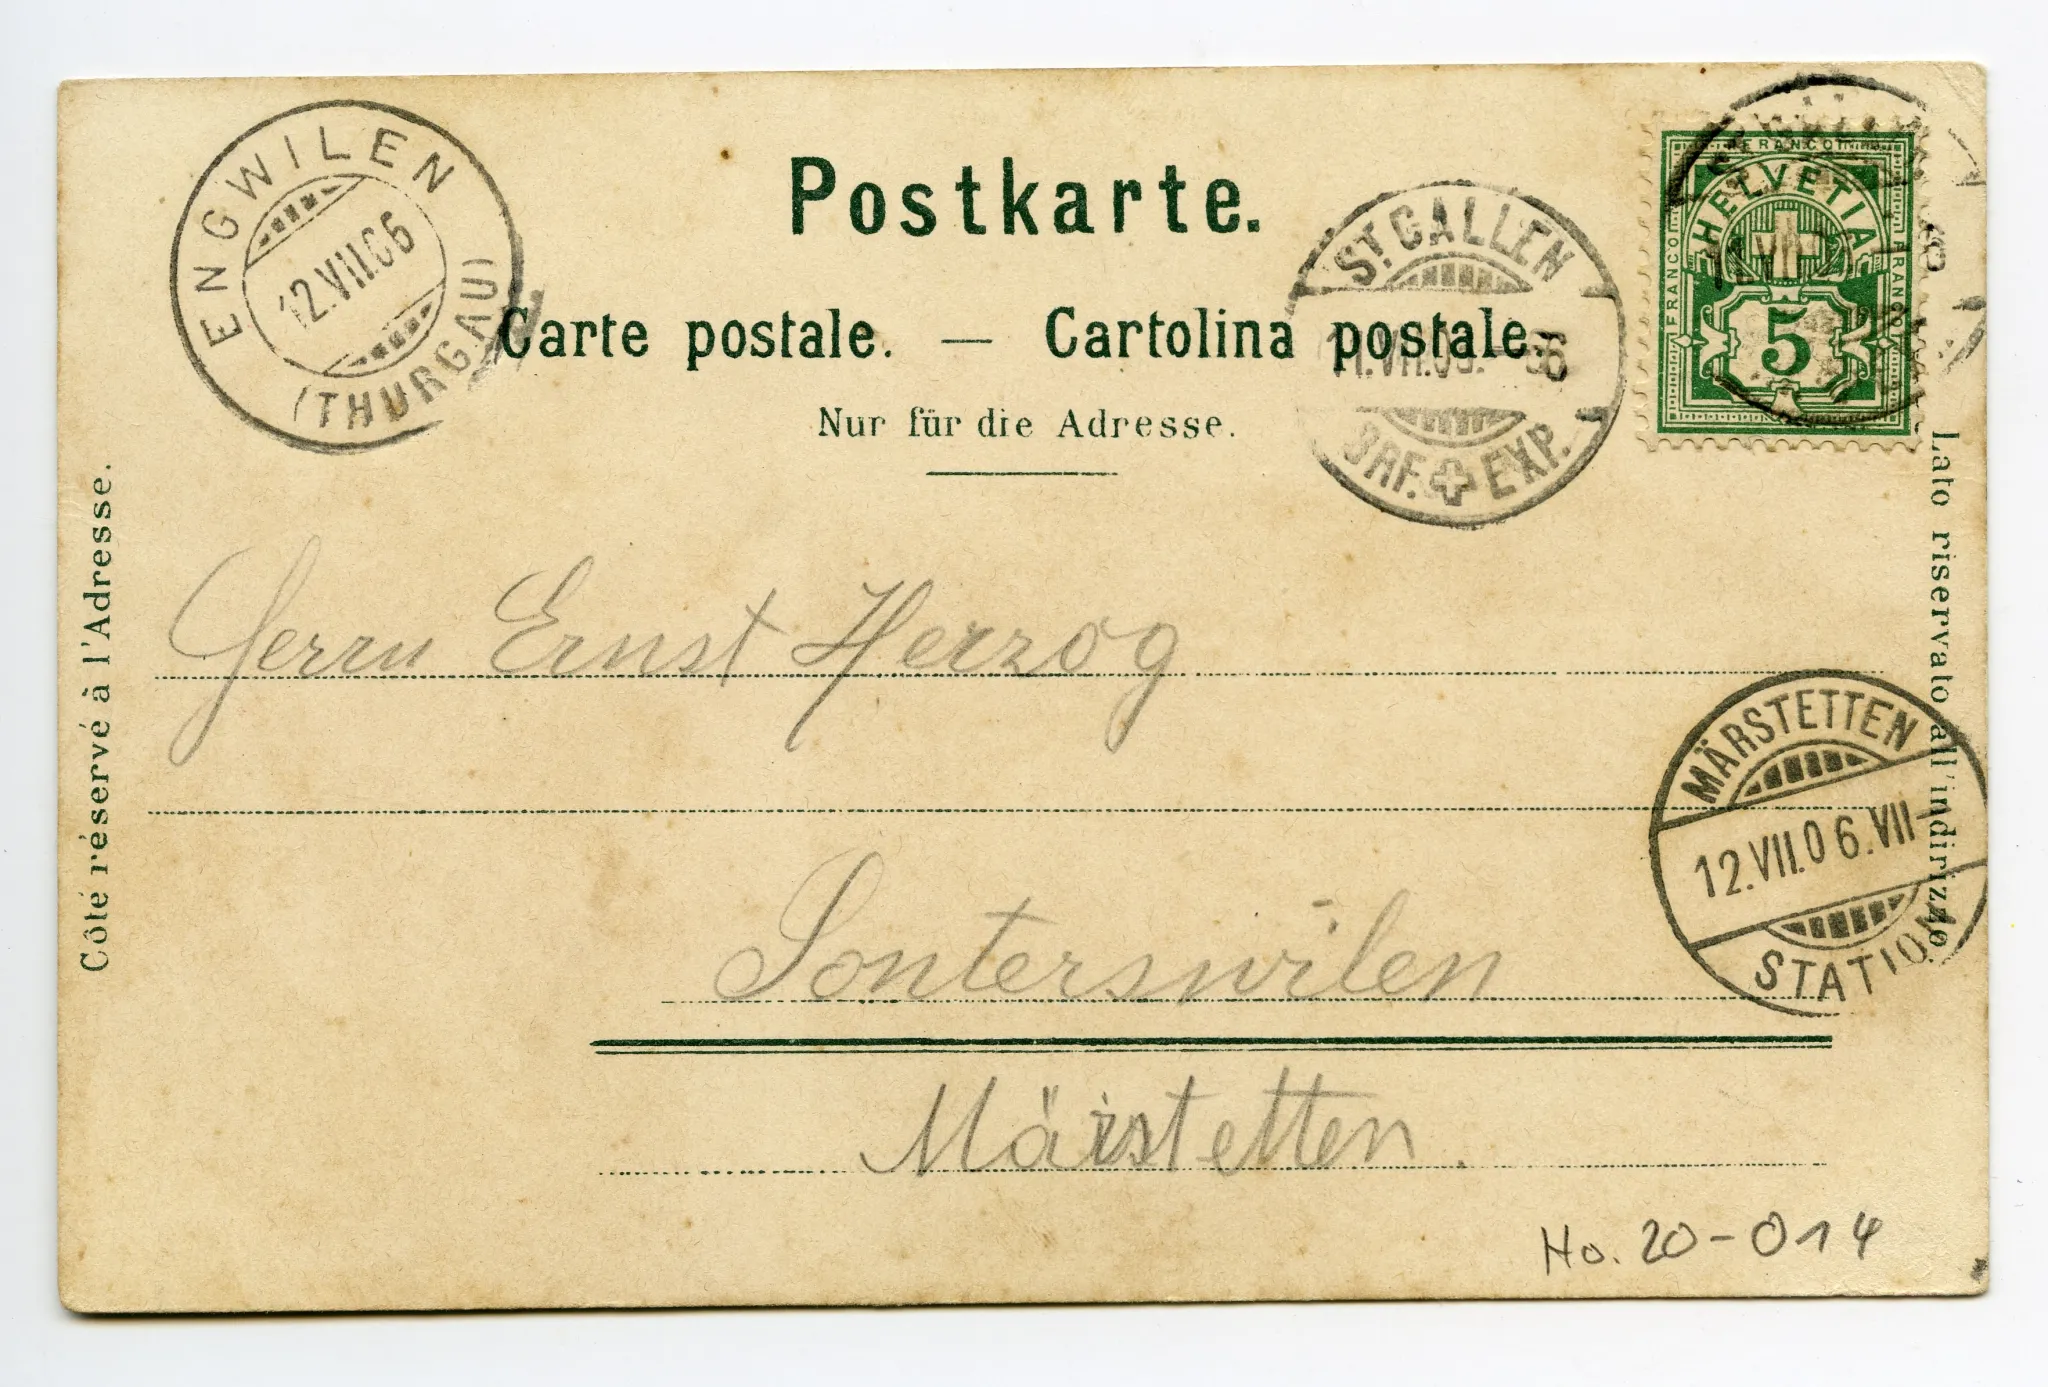 Postkarte.
Carte postale. — Cartolina postale.
Nur für die Adresse.
ENGWILEN
12.VII.06
(THURGAU)
ST. GALLEN
BRF. EXP.
FRANCO
HELVETIA
FRANCO
FRANCO
5
Côté réservé à l'Adresse.
Lato riservato all'indirizzo.
Herrn Ernst Herzog
MÄRSTETTEN
12.VII.06.VII-
STATION
Sonterswilen
Märstetten.
Ho. 20-014